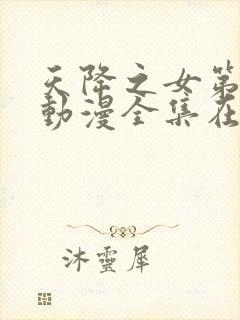 天降之女第
動漫全集在
沐靈犀